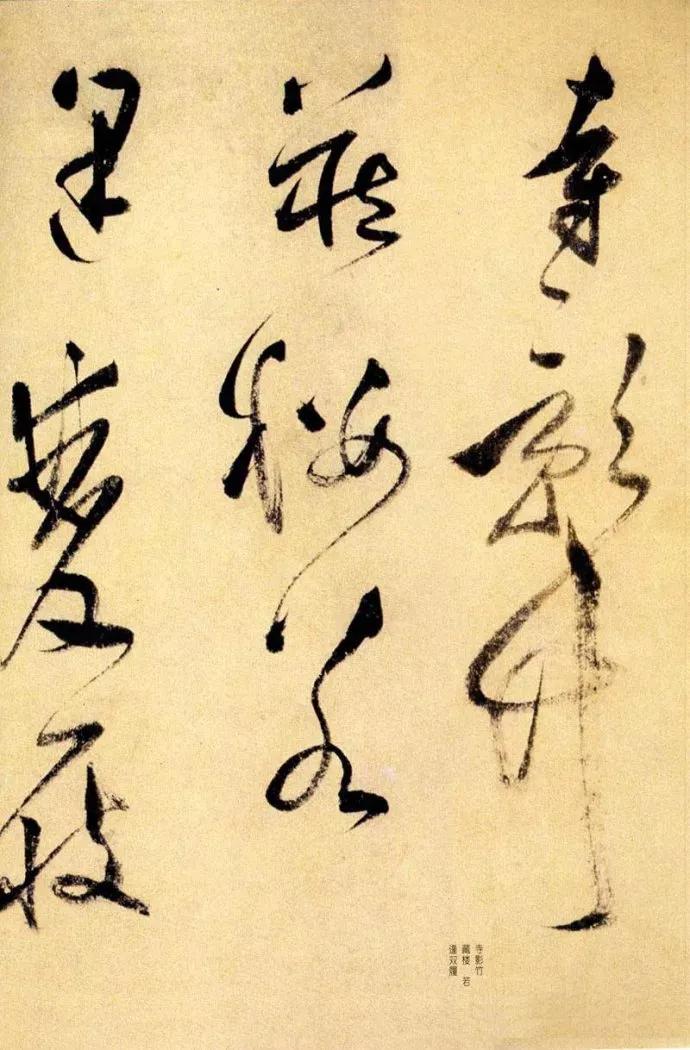 寺影竹
藏樓若
逢雙履
寺影竹
藏楼 若
逢双履